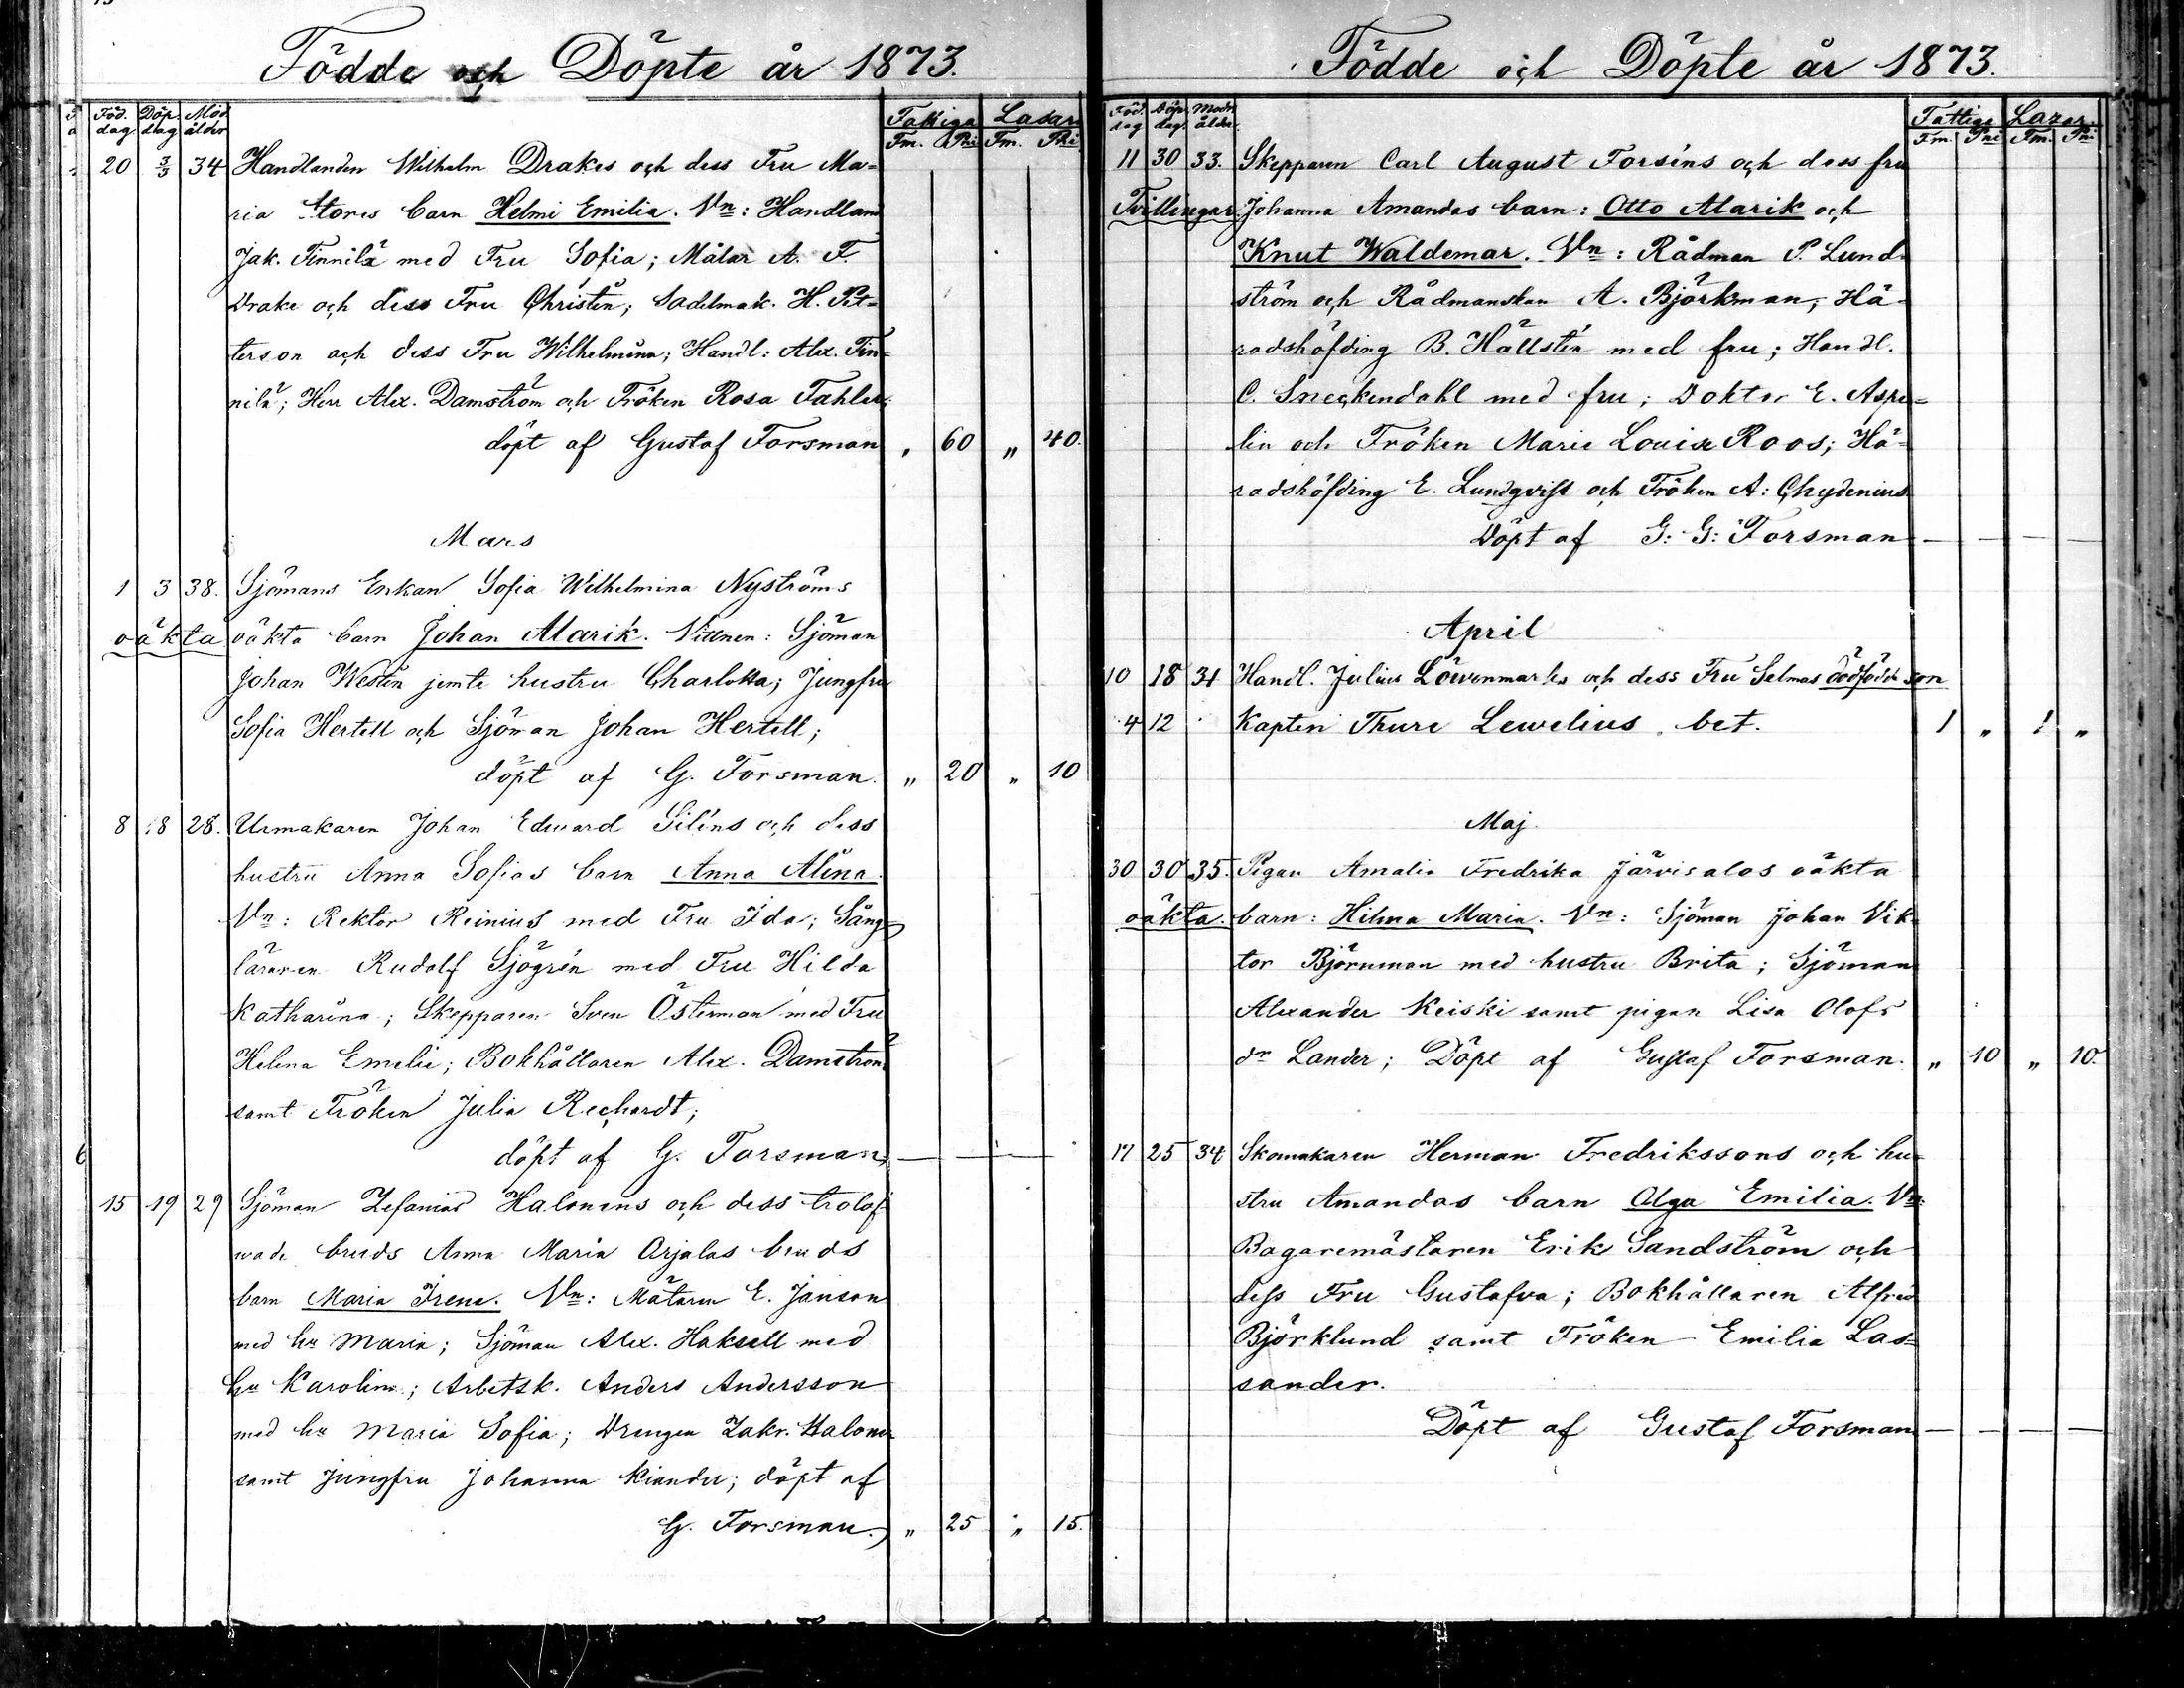 Födde och Döpte år 1873.
Föd. dag Döp. dag Mod. ålder Fattiga Lasar.
Fm. Pni Fm. Pni
20 3/3 34 Handlanden Wilhelm Drakes och dess Fru Ma-
ria barn Helmi Emilia. Vn: Handland
Jak. Finnilä med Fru Sofia; Målar A. F.
Drake och dess Fru Christin; Sadelmak. H. Pet-
terson och dess Fru Wilhelmina; Handl: Alex. Fin-
nilä; Herr Alex. Damström och Fröken Rosa Fahler;
döpt af Gustaf Forsman „ 60 „ 40.
Mars
1 3 38. Sjömans Enkan Sofia Wilhelmina Nyströms
oäkta oäkta barn Johan Alarik. Vittnen: Sjöman
Johan Westin jemte hustru Charlotta; Jungfru
Sofia Hertell och Sjöman Johan Hertell;
döpt af G. Forsman. „ 20 „ 10
8 18 28. Urmakaren Johan Edward Siléns och dess
hustru Anna Sofias barn Anna Alina.
Vn: Rektor Reinius med Fru Ida; Sång-
läraren Rudolf Sjögrén med Fru Hilda
Katharina; Skepparen Sven Österman med Fru
Helena Emelie; Bokhållaren Alex. Damström
samt Fröken Julia Rechardt;
döpt af G. Forsman
6
15 19 29 Sjöman Zefanias Halonens och dess trolof
wade bruds Anna Maria Arjalas bruds
barn Maria Irene. Vn: Mätaren E. Janson
med hu Maria; Sjöman Alex. Haksell med
hu Karolina; Arbetsk. Anders Andersson
med hu Maria Sofia; Drengen Zakr. Halonen
samt jungfru Johanna Kiander; döpt af
G. Forsman. „ 25 „ 15.
Födde och Döpte år 1873.
Föd. dag Döp. dag. Modr. ålder. Fattiga Lazar.
Fm. Pni Fm. Pni
11 30 33. Skepparen Carl August Forséns och dess fru
Tvillingar. Johanna Amandas barn: Otto Alarik och
Knut Waldemar. Vn: Rådman P. Lund-
ström och Rådmanskan A. Björkman; Hä-
radshöfding B. Hällstén med fru; Handl.
C. Sneckendahl med fru; Doktor E. Aspe-
lin och Fröken Marie Louise Roos; Hä-
radshöfding E. Lundqvist och Fröken A: Chydenius
Döpt af G: G: Forsman
April
10 18 31 Handl. Julius Löwenmarks och dess Fru Selmas dödfödde son
4 12 Kapten Thure Lewelius bet. 1 „ 1 „
Maj.
30 30 35. Pigan Amalia Fredrika Järvisalos oäkta
oäkta. barn: Hilma Maria. Vn: Sjöman Johan Vik-
tor Björnman med hustru Brita; Sjöman
Alexander Keiski samt pigan Lisa Olofs
dr Lander; Döpt af Gustaf Forsman. „ 10 „ 10.
17 25 34 Skomakaren Herman Fredrikssons och hu-
stru Amandas barn Olga Emilia. Vn:
Bagaremästaren Erik Sandström och
dess Fru Gustafva; Bokhållaren Alfred
Björklund samt Fröken Emilia Las-
sander.
Döpt af Gustaf Forsman